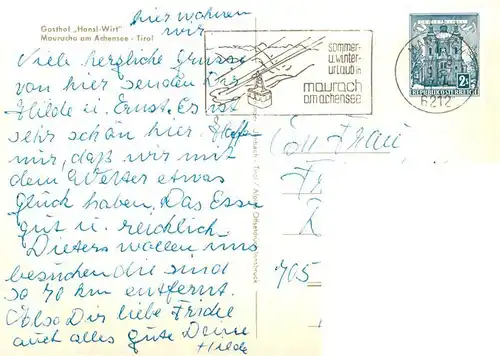 hier wohnen
wir
Gasthof „Hansl-Wirt"
Maurach am Achensee - Tirol
Viele herzliche Grüsse
von hier senden Dir
Hilde u. Ernst. Es ist
sehr schön hier. Hoffen
wir, daß wir mit
dem Wetter etwas
Glück haben. Das Essen
gut u. reichlich.
Dieters wollen uns
besuchen die sind
so 70 km entfernt.
Also Dir liebe Friedel
auch alles gute Deine
Hilde
sommer-
u.winter-
urlaub in
maurach
am achensee
6212
2S
REPUBLIK ÖSTERREICH
Frau
705